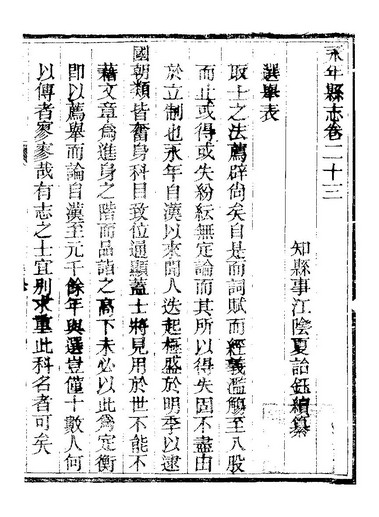 永年縣志卷二十三
知縣事江陰夏詒鈺續纂
選舉表
取士之法薦辟尚矣自是而詞賦而經義濫觴至八股
而止或得或失紛紜無定論而其所以得失固不盡由
於立制也永年自漢以來聞人迭起極盛於明季以逮
國朝類皆奮身科目致位通顯蓋士將見用於世不能不
藉文章為進身之階而品詣之高下未必以此為定衡
即以薦舉而論自漢至元千餘年與選豈僅十數人何
以傳者寥寥哉有志之士宜別求重此科名者可矣